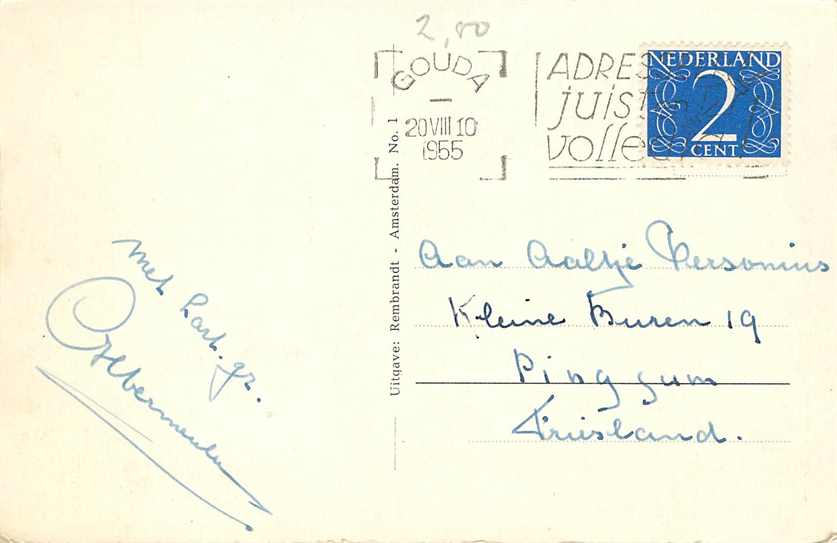 2,80
GOUDA
20 VIII 10
1955
ADRES
juist
volle
NEDERLAND
2
CENT
Uitgave: Rembrandt - Amsterdam. No. 1
met hart. gr.
Aan Aaltje Personius
Kleine Buren 19
Pinggum
Friesland.